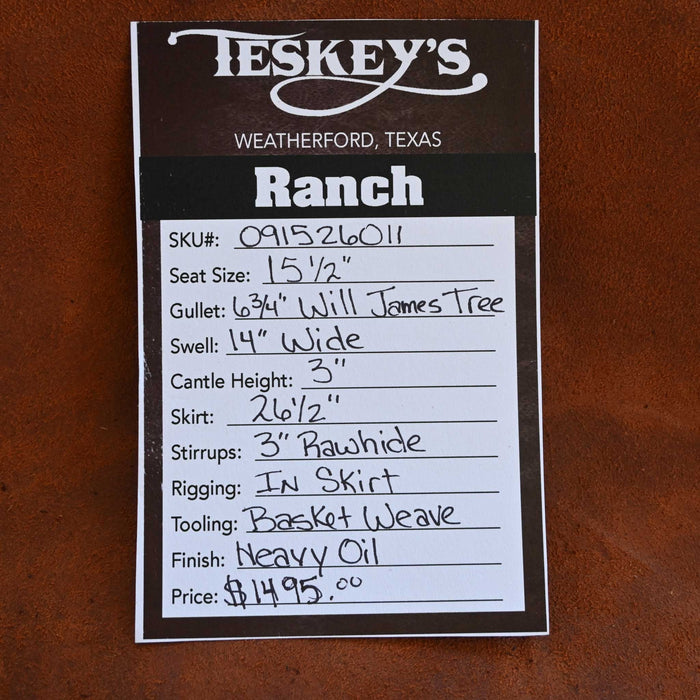 TESKEY'S
WEATHERFORD, TEXAS
Ranch
SKU#: 091526011
Seat Size: 15 1/2"
Gullet: 6 3/4" Will James Tree
Swell: 14" Wide
Cantle Height: 3"
Skirt: 26 1/2"
Stirrups: 3" Rawhide
Rigging: In Skirt
Tooling: Basket Weave
Finish: Heavy Oil
Price: $1495.00